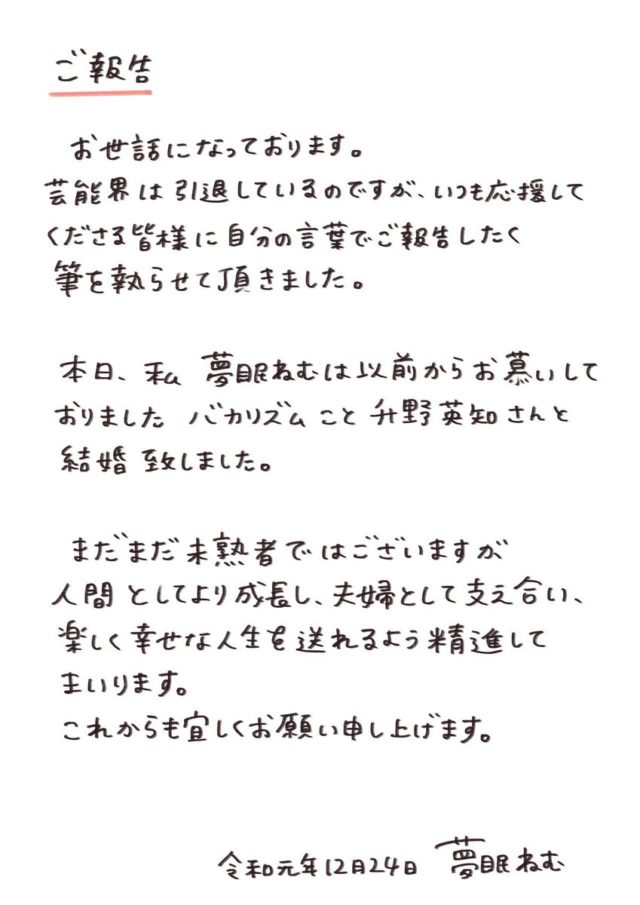 ご報告
お世話になっております。
芸能界は引退しているのですが、いつも応援して
くださる皆様に自分の言葉でご報告したく
筆を執らせて頂きました。
本日、私 夢眠ねむは以前からお慕いして
おりました バカリズム こと 升野英知さんと
結婚致しました。
まだまだ未熟者ではございますが
人間としてより成長し、夫婦として支え合い、
楽しく幸せな人生を送れるよう精進して
まいります。
これからも宜しくお願い申し上げます。
令和元年12月24日 夢眠ねむ